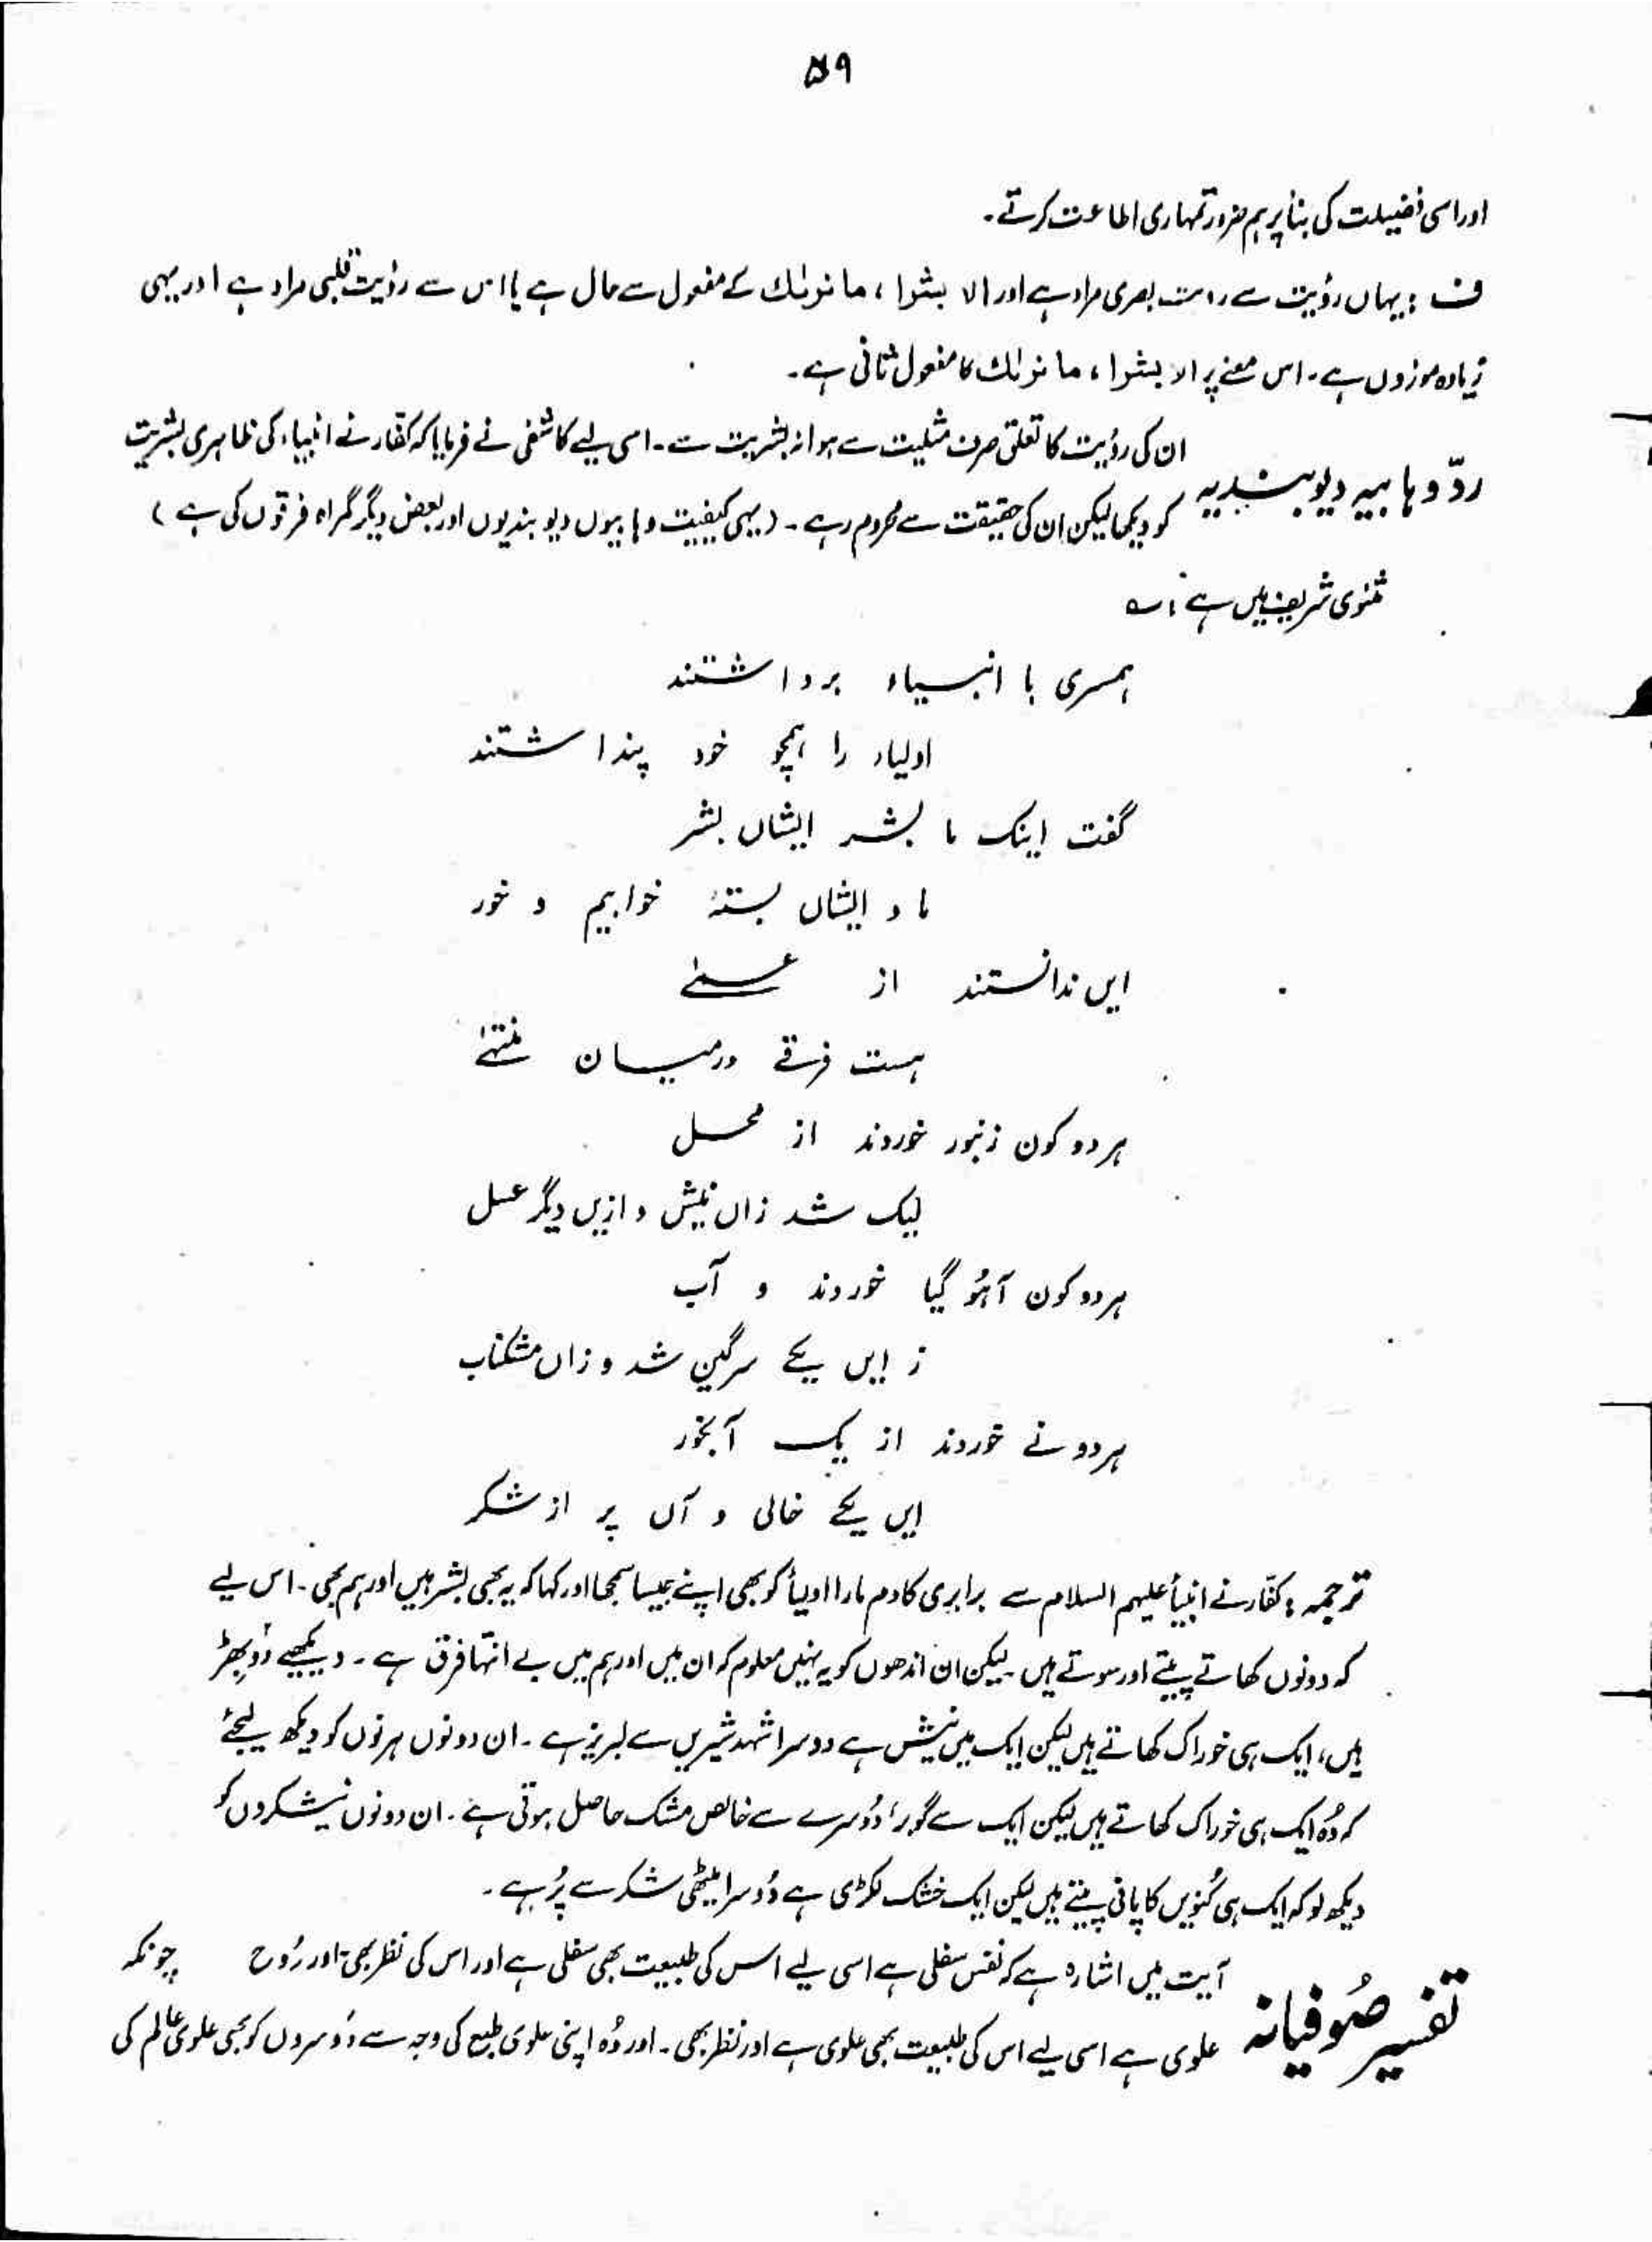 ۵۹
اور اسی فضیلت کی بنأ پر ہم ضرور تمہاری اطاعت کرتے۔
ف : یہاں رؤیت سے رویت بصری مراد ہے اور الا بشرا ، ما نراٮٰك کے مفعول سے حال ہے یا اس سے رؤیت قلبی مراد ہے اور یہی
زیادہ موزوں ہے۔ اس معنے پر الا بشرا ، ما نراٮك کا مفعول ثانی ہے۔
ردّ وہابیہ دیوبندیہ
ان کی رؤیت کا تعلق صرف مثلیت سے ہو از بشریت سے۔ اسی لیے کاشفی نے فرمایا کہ کفّار نے انبیاء کی ظاہری بشریت
کو دیکھا لیکن ان کی حقیقت سے محروم رہے۔ (یہی کیفیت وہابیوں دیوبندیوں اور بعض دیگر گمراہ فرقوں کی ہے )
مثنوی شریف میں ہے : ؎
ہمسری با انبیاء برداشتند
اولیاء را ہمچو خود پنداشتند
گفت اینک ما بشر ایشاں بشر
ما و ایشاں بستۂ خوابیم و خور
ایں ندانستند از عمےٰ
ہست فرقے درمیان منتہےٰ
ہر دو کون زنبور خوردند از محل
لیک شد زاں نیش و ازیں دیگر عسل
ہر دو کون آہُو گیا خوردند و آب
ز ایں یکے سرگیں شد و زاں مشکناب
ہر دو نے خوردند از یک آبخور
ایں یکے خالی و آں پر از شکر
ترجمہ : کفّار نے انبیأ علیہم السلام سے برابری کا دم مارا اولیأ کو بھی اپنے جیسا سمجھا اور کہا کہ یہ بھی بشر ہیں اور ہم بھی۔ اس لیے
کہ دونوں کھاتے پیتے اور سوتے ہیں لیکن ان اندھوں کو یہ نہیں معلوم کہ ان میں اور ہم میں بے انتہا فرق ہے۔ دیکھیے دُو بِھڑ
ہیں، ایک ہی خوراک کھاتے ہیں لیکن ایک میں نیش ہے دوسرا شہد شیریں سے لبریز ہے۔ ان دونوں ہرنوں کو دیکھ لیجئے
کہ وُہ ایک ہی خوراک کھاتے ہیں لیکن ایک سے گوبر، دُوسرے سے خالص مشک حاصل ہوتی ہے۔ ان دونوں نیشکروں کو
دیکھ لو کہ ایک ہی کُنویں کا پانی پیتے ہیں لیکن ایک خشک لکڑی ہے دُوسرا میٹھی شکر سے پُر ہے۔
تفسیر صُوفیانہ
آیت میں اشارہ ہے کہ نفس سفلی ہے اسی لیے اس کی طبیعت بھی سفلی ہے اور اس کی نظر بھی۔ اور رُوح چونکہ
علوی ہے اسی لیے اس کی طبیعت بھی علوی ہے اور نظر بھی۔ اور وُہ اپنی علوی طبع کی وجہ سے دُوسروں کو بھی علوی عالم کی